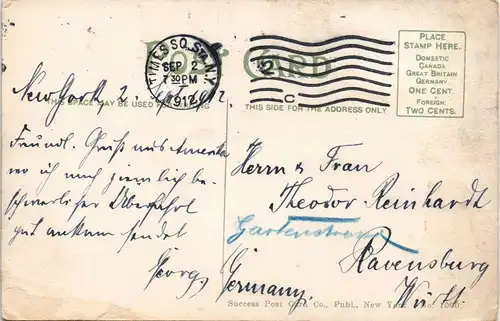 POST CARD
TIMES SQ. STA. N.Y.
SEP 2
7 30 PM
1912
C
PLACE
STAMP HERE.
DOMESTIC
CANADA
GREAT BRITAIN
GERMANY
ONE CENT.
FOREIGN
TWO CENTS.
THIS SPACE MAY BE USED
THIS SIDE FOR THE ADDRESS ONLY
New York 2.
Freundl. Gruß aus Amerika
wo ich nach ziemlich be-
schwerlicher Überfahrt
gut ankam sendet
Georg.
Herrn & Frau
Theodor Reinhardt
Gartenstrasse
Ravensburg
Germany. Württ.
Success Post Card Co., Publ., New York, No. 1000